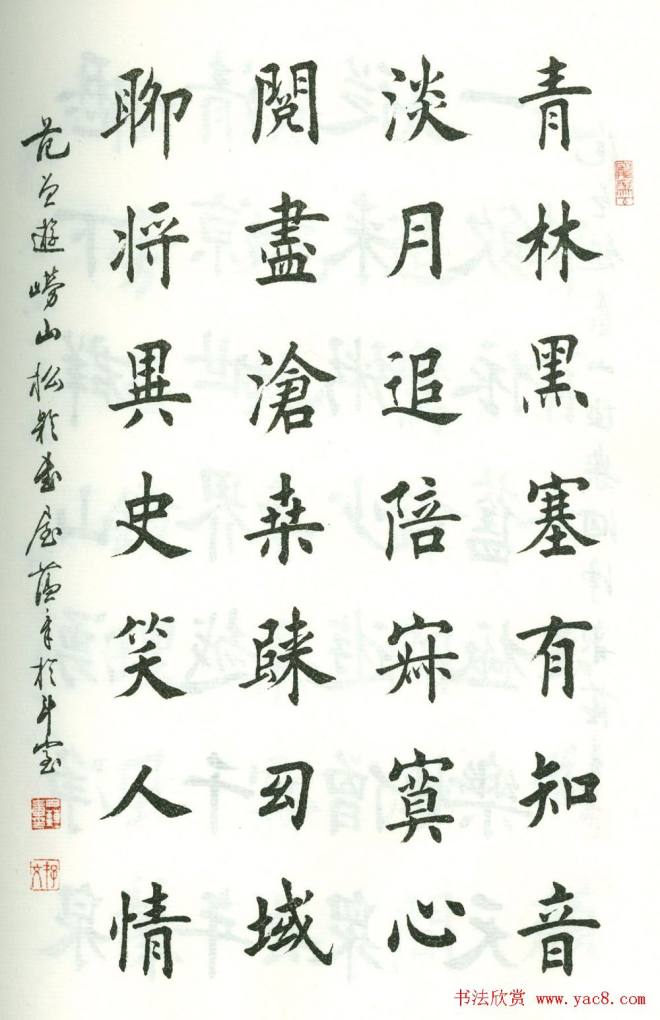 青林黑塞有知音
淡月追陪寂寞心
閱盡滄桒踈幻域
聊將異史笑人情
范曾遊嶗山松齡書屋於斗室
书法欣赏 www.yac8.com